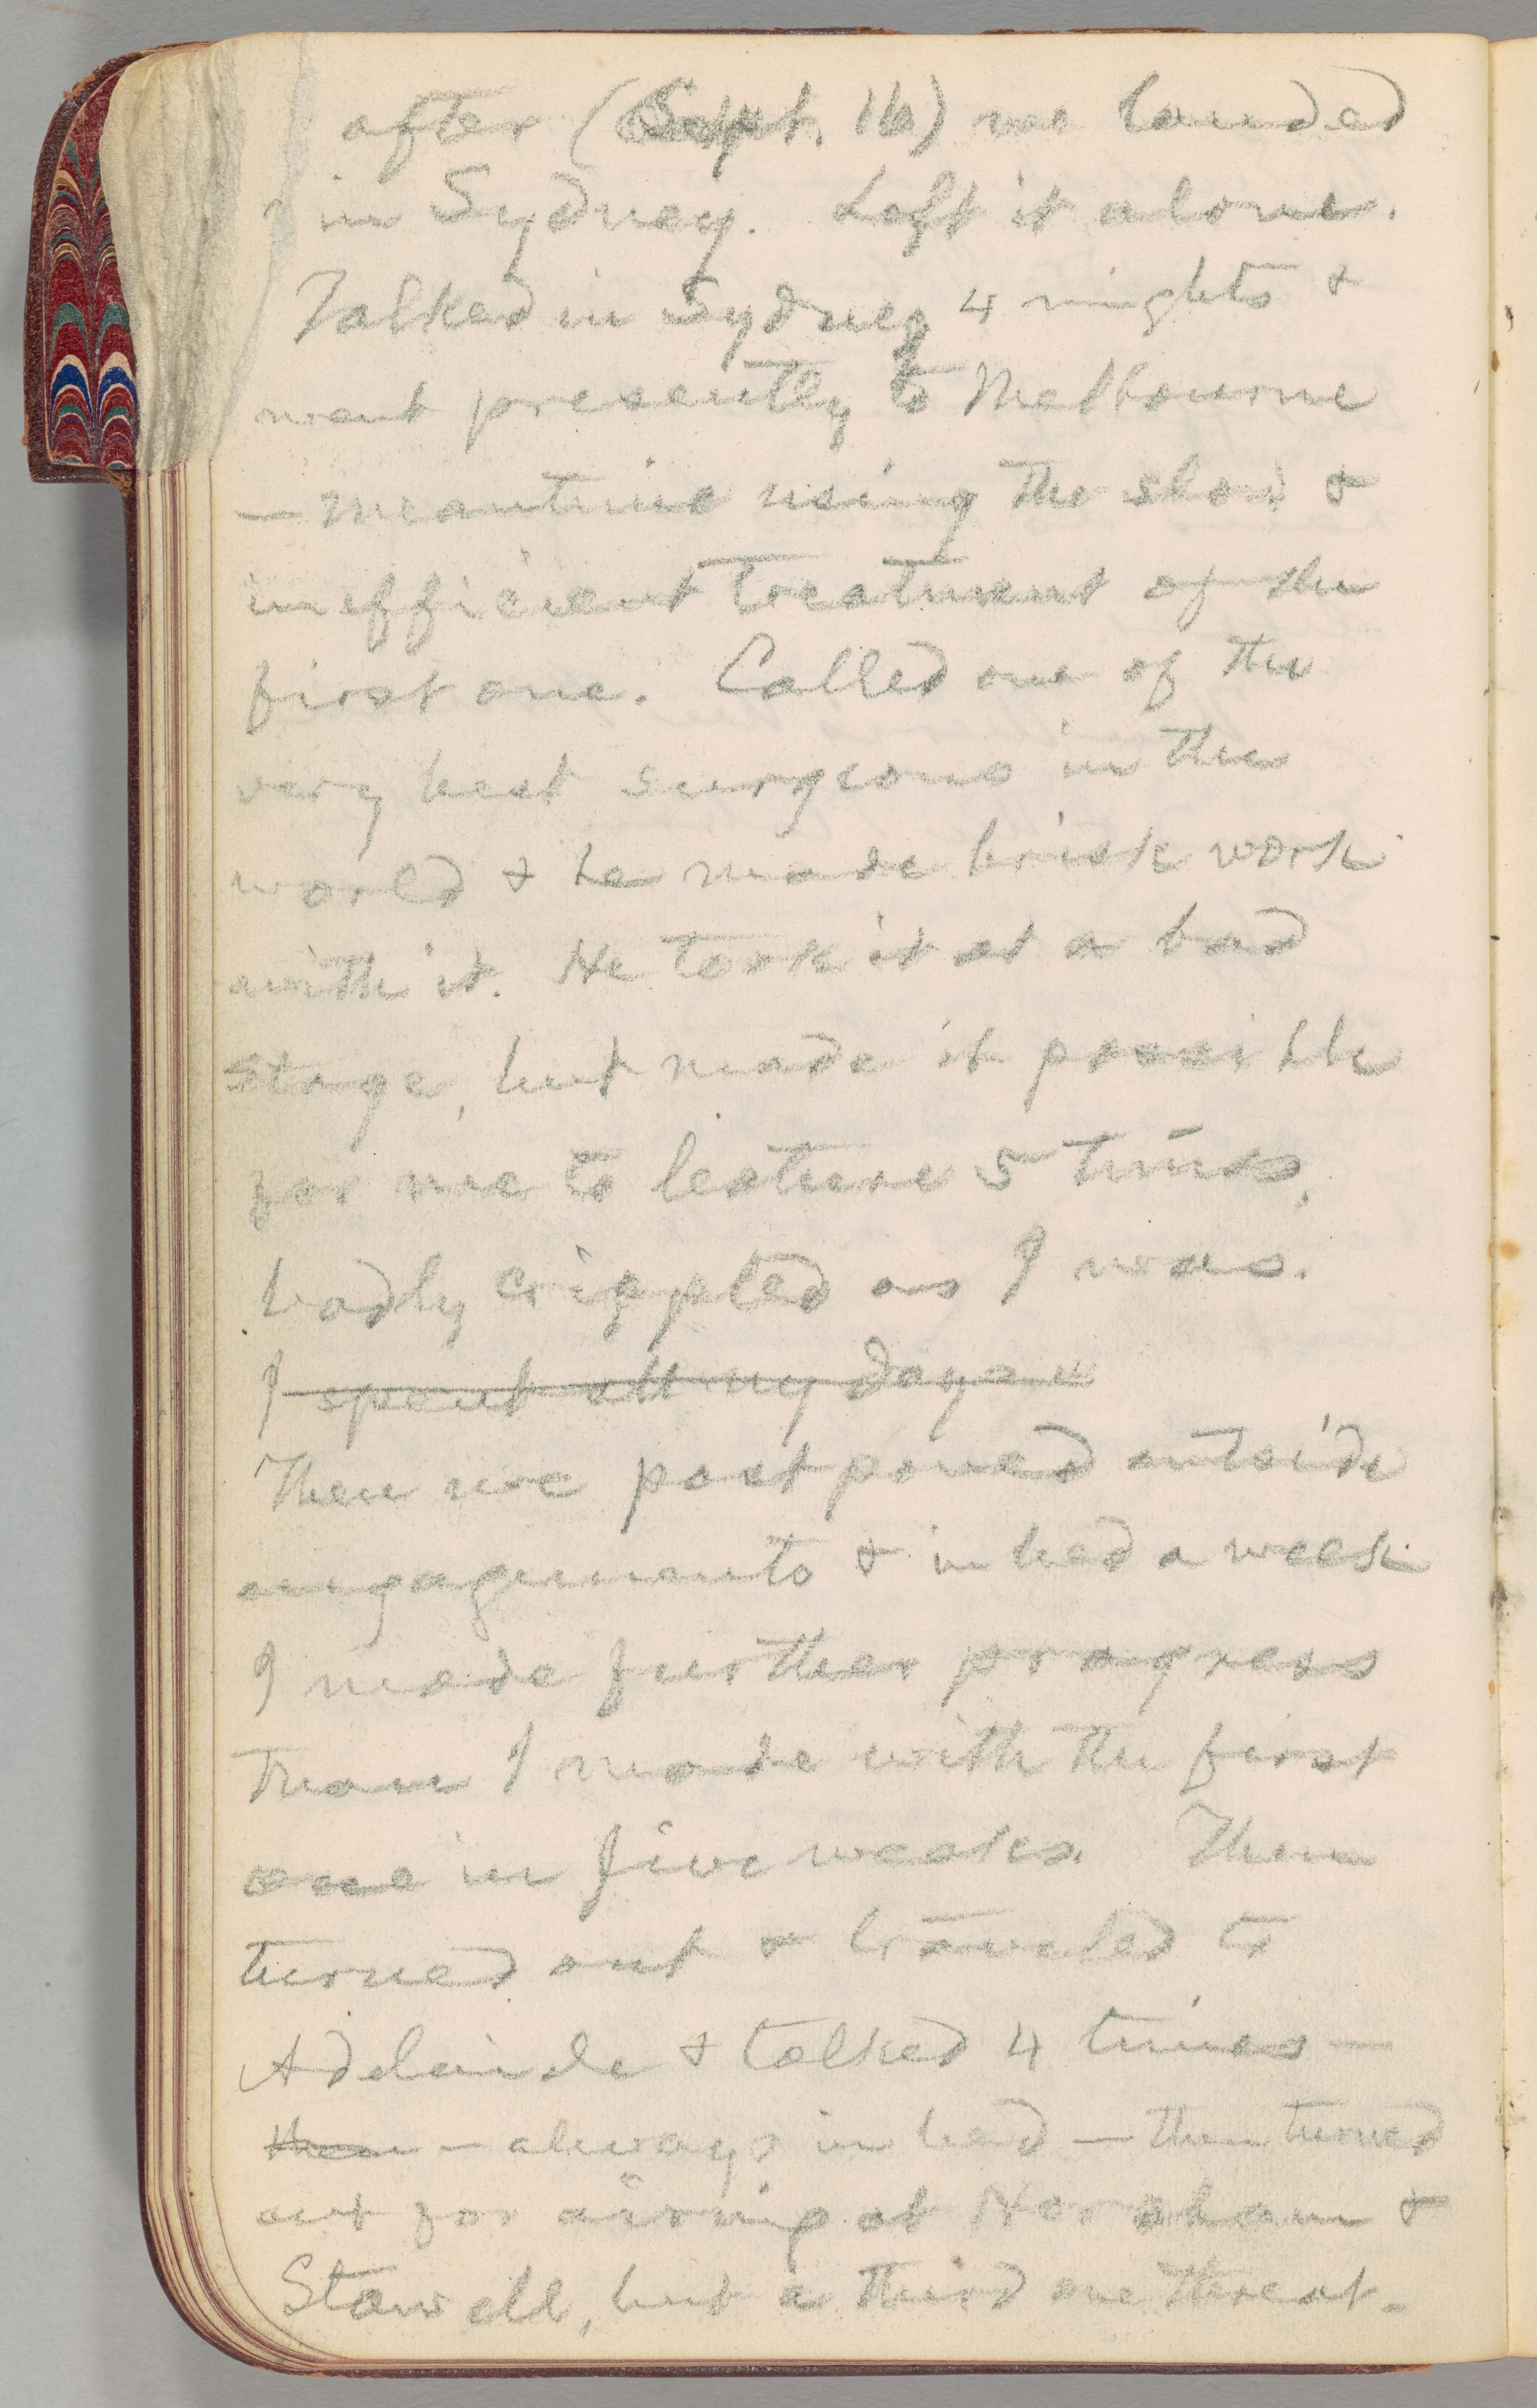 after (Sept. 16) we landed
in Sydney. Left it alone.
Talked in Sydney 4 nights &
went presently to Melbourne
— meantime using the slow &
inefficient treatment of the
first one. Called one of the
very best surgeons in the
world & he made brisk work
with it. He took it at a bad
stage, but made it possible
for me to lecture 5 times,
badly crippled as I was.
I spent all my days
Then we postponed outside
engagements & in bed a week
I made further progress
than I made with the first
one in five weeks. Then
turned out & traveled to
Adelaide & talked 4 times —
then — always in bed — then turned
out for airing at Horsham &
Stawell, but a third one threat-